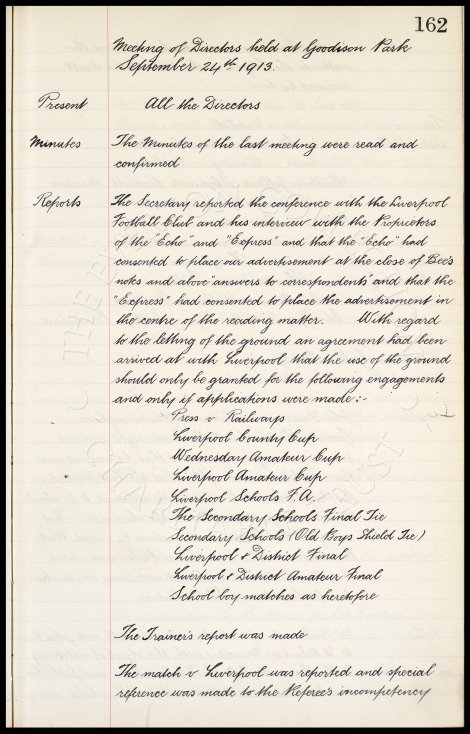 162
Meeting of Directors held at Goodison Park
September 24th 1913.
Present All the Directors
Minutes The Minutes of the last meeting were read and
confirmed
Reports The Secretary reported the conference with the Liverpool
Football Club and his interview with the Proprietors
of the "Echo" and "Express" and that the "Echo" had
consented to place our advertisement at the close of Bee's
notes and above "answers to correspondents" and that the
"Express" had consented to place the advertisement in
the centre of the reading matter. With regard
to the letting of the ground an agreement had been
arrived at with Liverpool that the use of the ground
should only be granted for the following engagements
and only if applications were made :-
Press v Railways
Liverpool County Cup
Wednesday Amateur Cup
Liverpool Amateur Cup
Liverpool Schools F.A.
The Secondary Schools Final Tie
Secondary Schools (Old Boys Shield Tie)
Liverpool & District Final
Liverpool & District Amateur Final
School boy matches as heretofore
The Trainer's report was made
The match v Liverpool was reported and special
reference was made to the Referee's incompetency